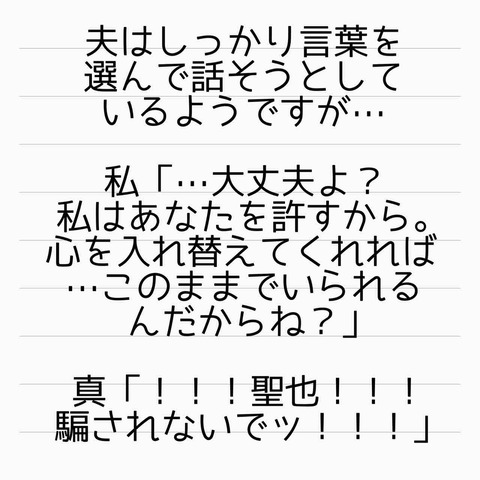 夫はしっかり言葉を
選んで話そうとして
いるようですが…
私「…大丈夫よ？
私はあなたを許すから。
心を入れ替えてくれれば
…このままでいられる
んだからね？」
真「！！！聖也！！！
騙されないでッ！！！」